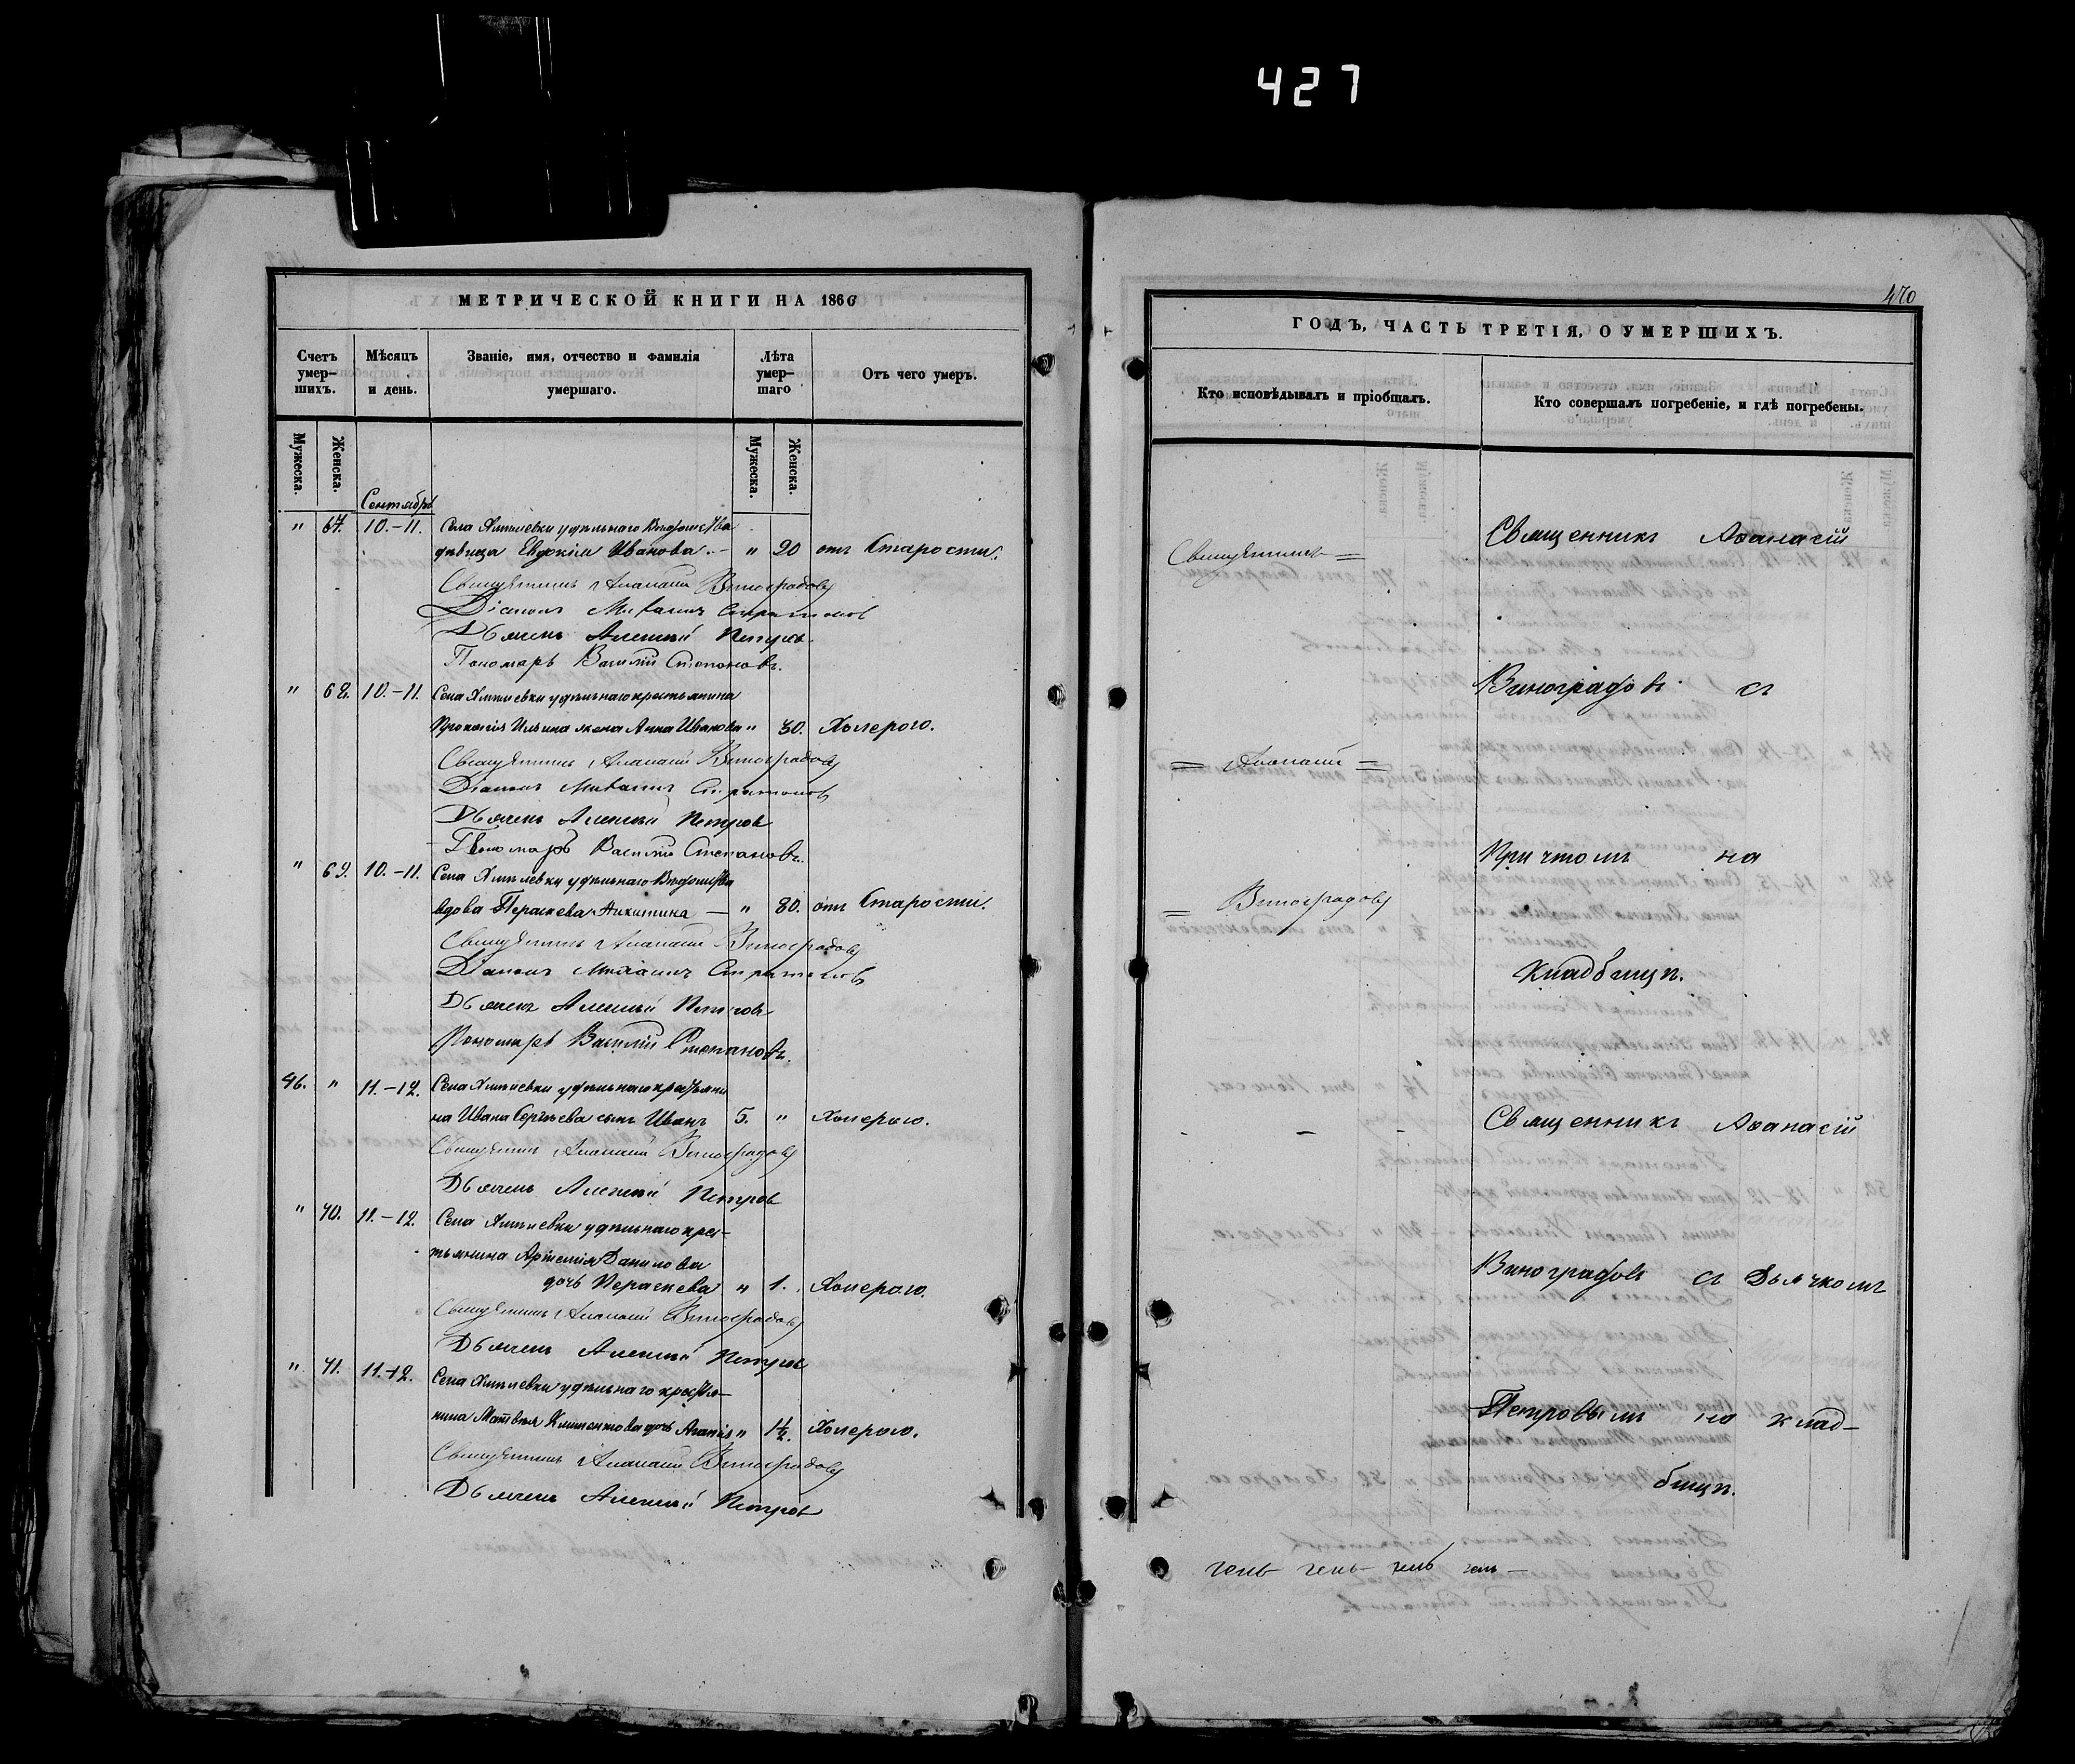 427
МЕТРИЧЕСКОЙ КНИГИ НА 1866
Счетъ умер-шихъ.
Мѣсяцъ и день.
Званіе, имя, отчество и фамилія умершаго.
Лѣта умер-шаго
Отъ чего умеръ.
Мужеска.
Женска.
Мужеска.
Женска.
Сентябрь
" 67. 10.-11. Села удѣльнаго Вѣдомства
дѣвица Евдокія Иванова.- " 90 отъ Старости.
Священникъ Аѳанасій Виноградовъ
Діаконъ Стратоновъ
Дьячекъ Алексѣй Петровъ
Пономарь Василій Степановъ.
" 68. 10.-11. Села удѣльнаго крестьянина
Прокопія Ильина жена Анна Иванова " 30. Холерою.
Священникъ Аѳанасій Виноградовъ
Діаконъ Стратоновъ
Дьячекъ Алексѣй Петровъ
Пономарь Василій Степановъ.
" 69. 10.-11. Села удѣльнаго Вѣдомства
вдова Параскева Никитина — " 80. отъ Старости.
Священникъ Аѳанасій Виноградовъ
Діаконъ Стратоновъ
Дьячекъ Алексѣй Петровъ
Пономарь Василій Степановъ.
46. " 11.-12. Села удѣльнаго крестьяни
на Ивана Сергѣева сынъ Иванъ 5. " Холерою.
Священникъ Аѳанасій Виноградовъ
Дьячекъ Алексѣй Петровъ
" 70. 11.-12. Села удѣльнаго крес-
тьянина Артемія Данилова
дочь Параскева " 1. Холерою.
Священникъ Аѳанасій Виноградовъ
Дьячекъ Алексѣй Петровъ
" 71. 11.-12. Села удѣльнаго крестья-
нина Матвѣя дочь " 1½. Холерою.
Священникъ Аѳанасій Виноградовъ
Дьячекъ Алексѣй Петровъ
470
ГОДЪ, ЧАСТЬ ТРЕТІЯ, О УМЕРШИХЪ.
Кто исповѣдывалъ и пріобщалъ.
Кто совершалъ погребеніе, и гдѣ погребены.
Священникъ =
= Аѳанасій =
= Виноградовъ
Священникъ Аѳанасій
Виноградовъ съ
Причтомъ на
кладбищѣ.
Священникъ Аѳанасій
Виноградовъ съ Дьячкомъ
Петровымъ на клад-
бищѣ.